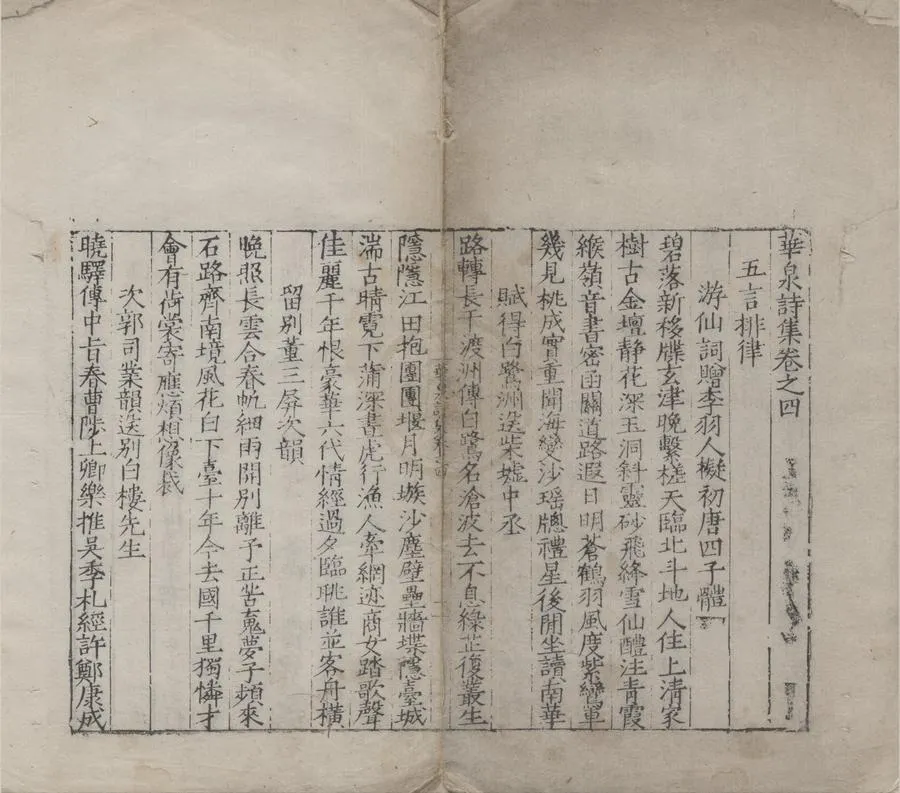 華泉詩集卷之四
五言排律
游仙詞贈李羽人擬初唐四子體
碧落新移牒玄津晚繫槎天臨北斗地人住上清家
樹古金壇静花深玉洞斜靈砂飛絳雪仙醴注青霞
緱嶺音書密函關道路遐日明蒼鶴羽風度紫鸞車
幾見桃成實重聞海變沙瑶牕禮星後閒坐讀南華
賦得白鷺洲送柴墟中丞
路轉長干渡洲傳白鷺名滄波去不息綠芷復叢生
隱隱江田抱團團堰月明

沙塵壁壘牆堞隱臺城
湍古晴霓下蒲深晝虎行漁人牽網迹商女踏歌聲
佳麗千年恨豪華六代情經過夕臨眺誰並客舟橫
留别董三屏次韻
晚照長雲合春帆細雨開別離予正苦夢子頻來
石路齊南境風花白下臺十年今去國千里獨憐才
會有荷裳寄應煩想像裁
次郭司業韻送别白樓先生
曉驛傳中旨春曹陟上卿樂推吳季札經許鄭康成